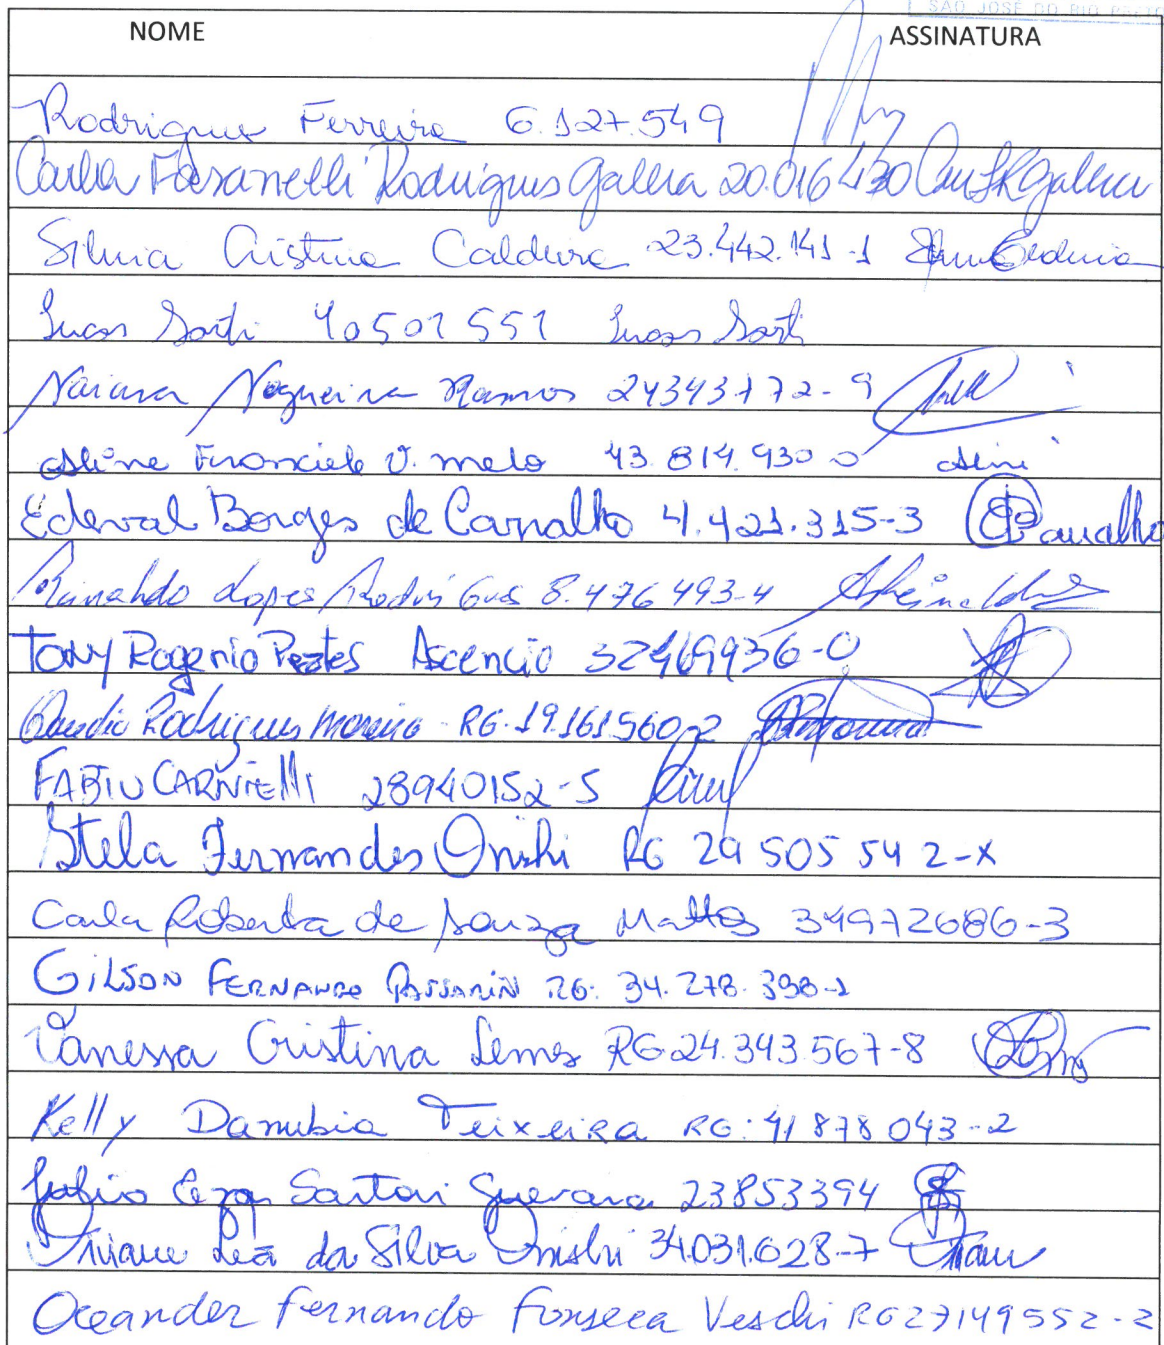 SÃO JOSÉ DO RIO PRETO
NOME ASSINATURA
Rodrigues Ferreira 6.127.549
Carla Fasanelli Rodrigues Gallea 20.016430
Silvia Cristina Caldeira 23.442.141-1
Lucas Sarti 40501551 Lucas Sarti
Naiara Nogueira Ramos 24343172-9
Aline Franciele V. melo 43.814.930 0 Aline
Ederval Borges de Carvalho 4.421.315-3 Carvalho
Reinaldo Lopes Rodrigues 8.476.493-4
Tony Rogerio Prestes Ascencio 32469936-0
Claudio Rodrigues Moreira - RG. 19.161.560-2
FABIO CARNIELLI 28940152-5
Stela Fernandes Onishi RG 29 505 542-X
Carla Roberta de Souza Mattos 34972686-3
GILSON FERNANDO RG: 34.278.398-1
Vanessa Cristina Lemos RG 24.343.567-8
Kelly Danubia Teixeira RG: 41 878 043-2
Fabio Cezar Sartori Guevara 23853394
Viviane Léa da Silva Onishi 34.031.628-7
Oceander Fernando Fonseca Veschi RG 27149552-2